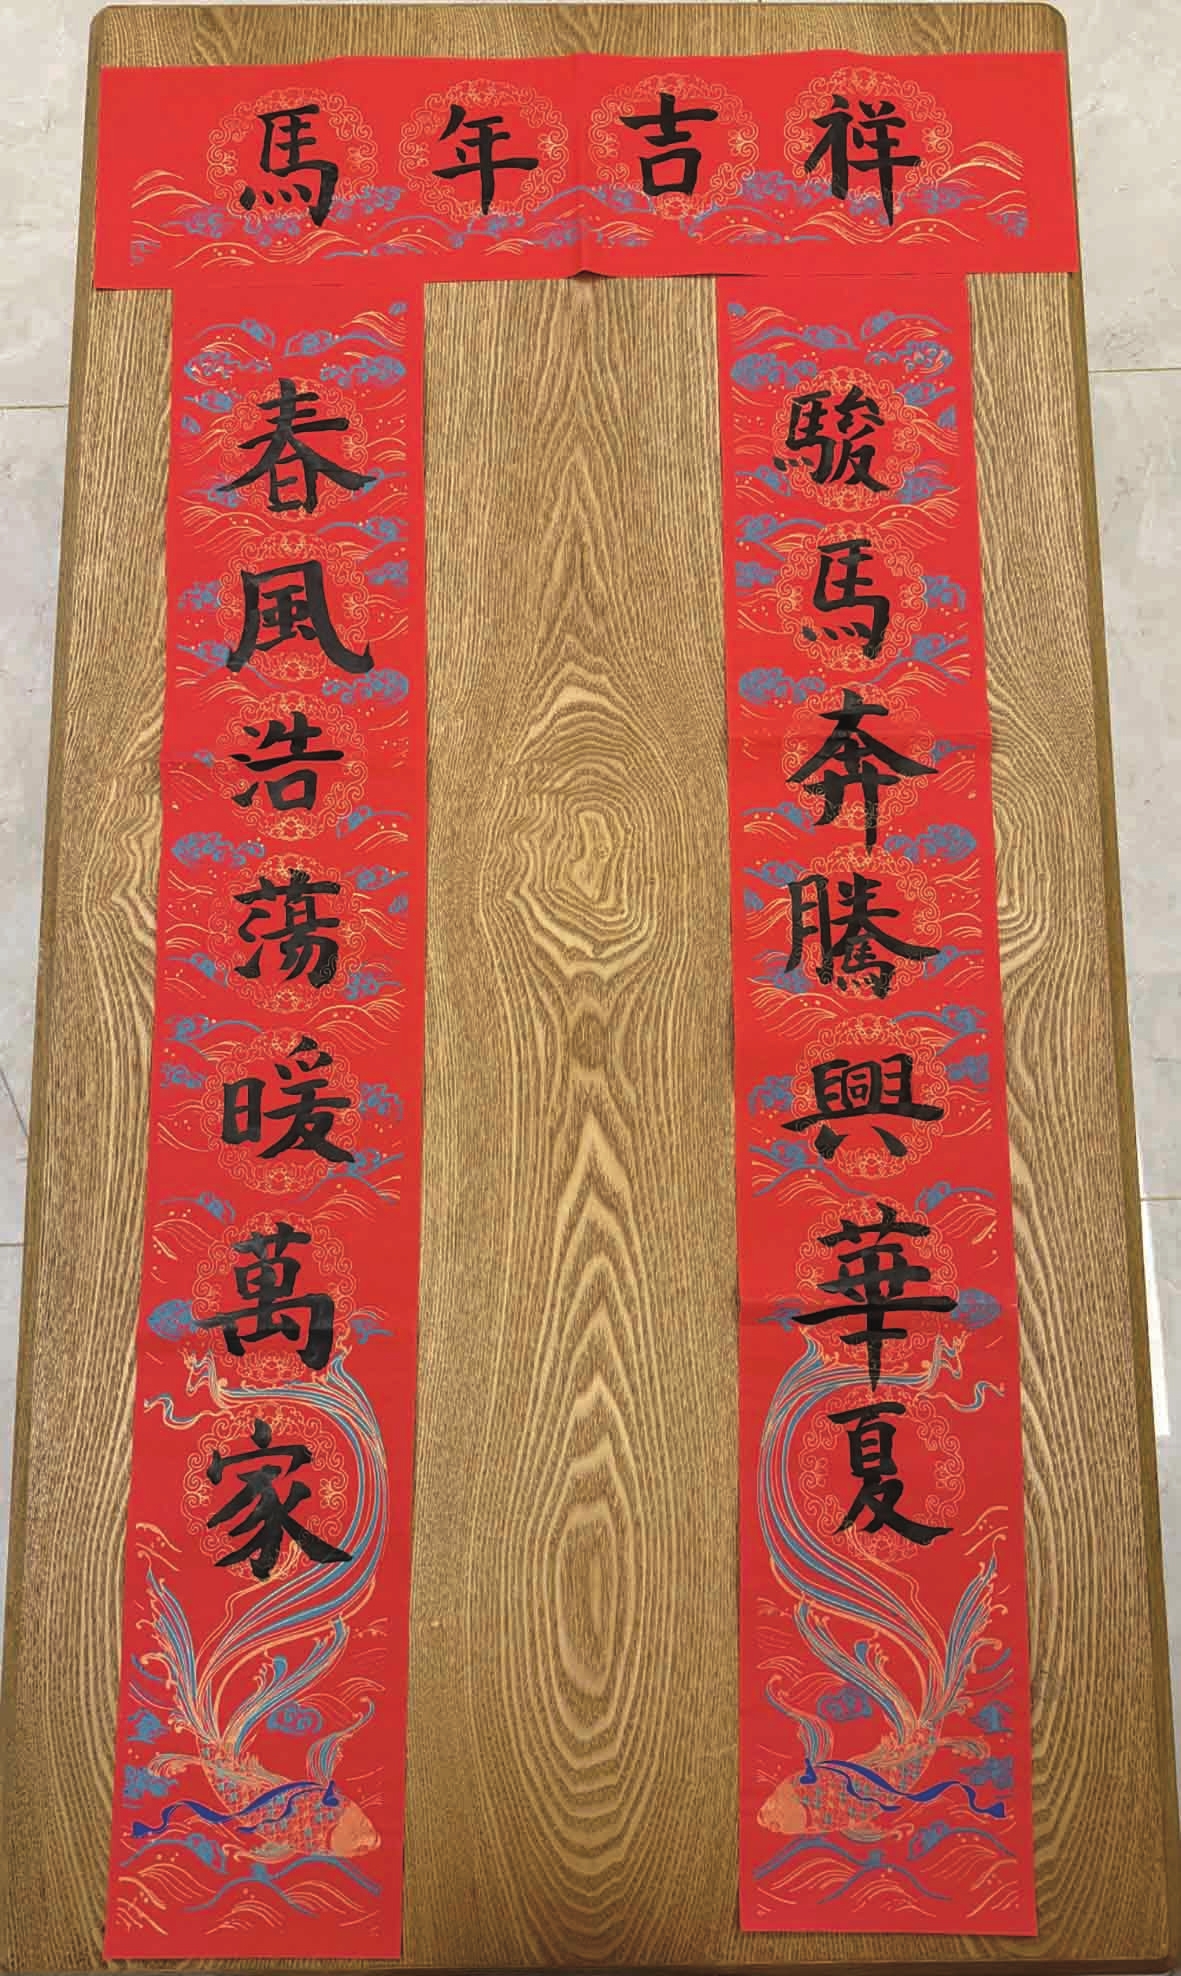 馬年吉祥
駿馬奔騰興華夏
春風浩蕩暖萬家